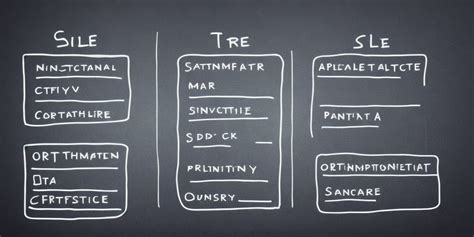 SILE
NINSTCTANAL
CTFIYV
CORTATHLIRE
ORTTHMATEN
DTA
CFRTFSTICE
TRE
SATTNMFATR
MAR
SINVCTTIE
SDD'CK
PRLINITINY
OUNSRY
SLE
APLCALETALTCTE
PANTIATA
ORTINMPTIONIETIAT
SANCARE